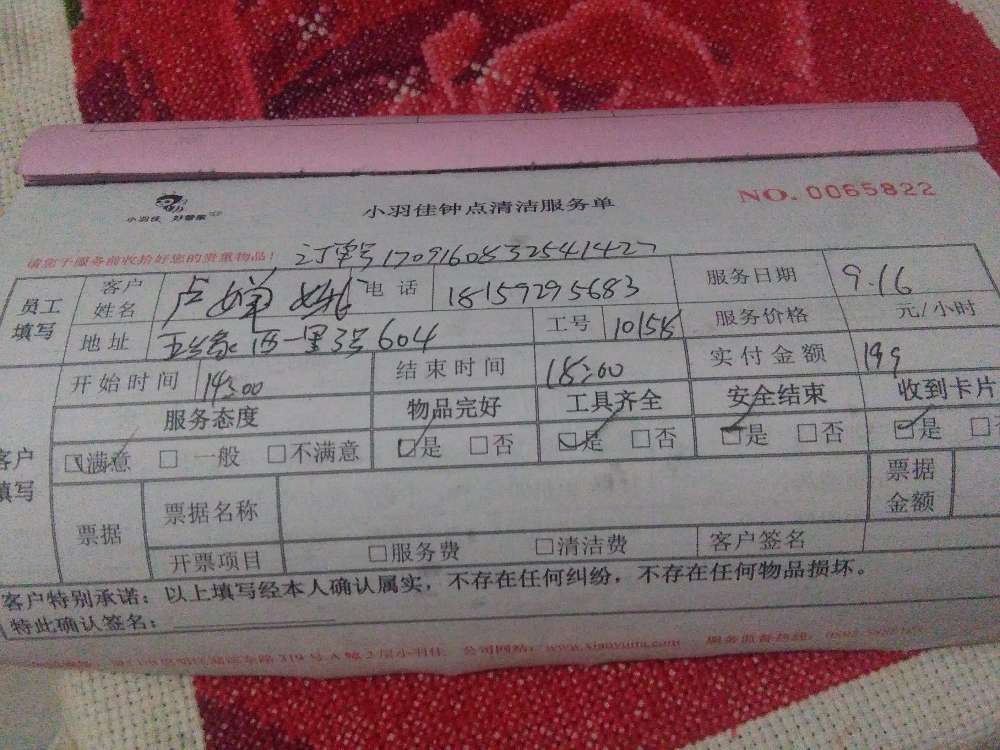 小羽佳 好管家
小羽佳钟点清洁服务单
NO. 0065822
请您于服务前收拾好您的贵重物品!
订单号1709160832541427
员工填写 客户姓名 卢婵 电话 18159295683 服务日期 9.16
地址 西一里3号604 工号 10155 服务价格 元/小时
开始时间 14:00 结束时间 18:00 实付金额 199
服务态度 物品完好 工具齐全 安全结束 收到卡片
客户填写 ☑满意 □一般 □不满意 ☑是 □否 ☑是 □否 ☑是 □否 ☑是 □
票据 票据名称 票据金额
开票项目 □服务费 □清洁费 客户签名
客户特别承诺：以上填写经本人确认属实，不存在任何纠纷，不存在任何物品损坏。
特此确认签名：
路319号A幢2层小羽佳 公司网站： 服务监督热线：